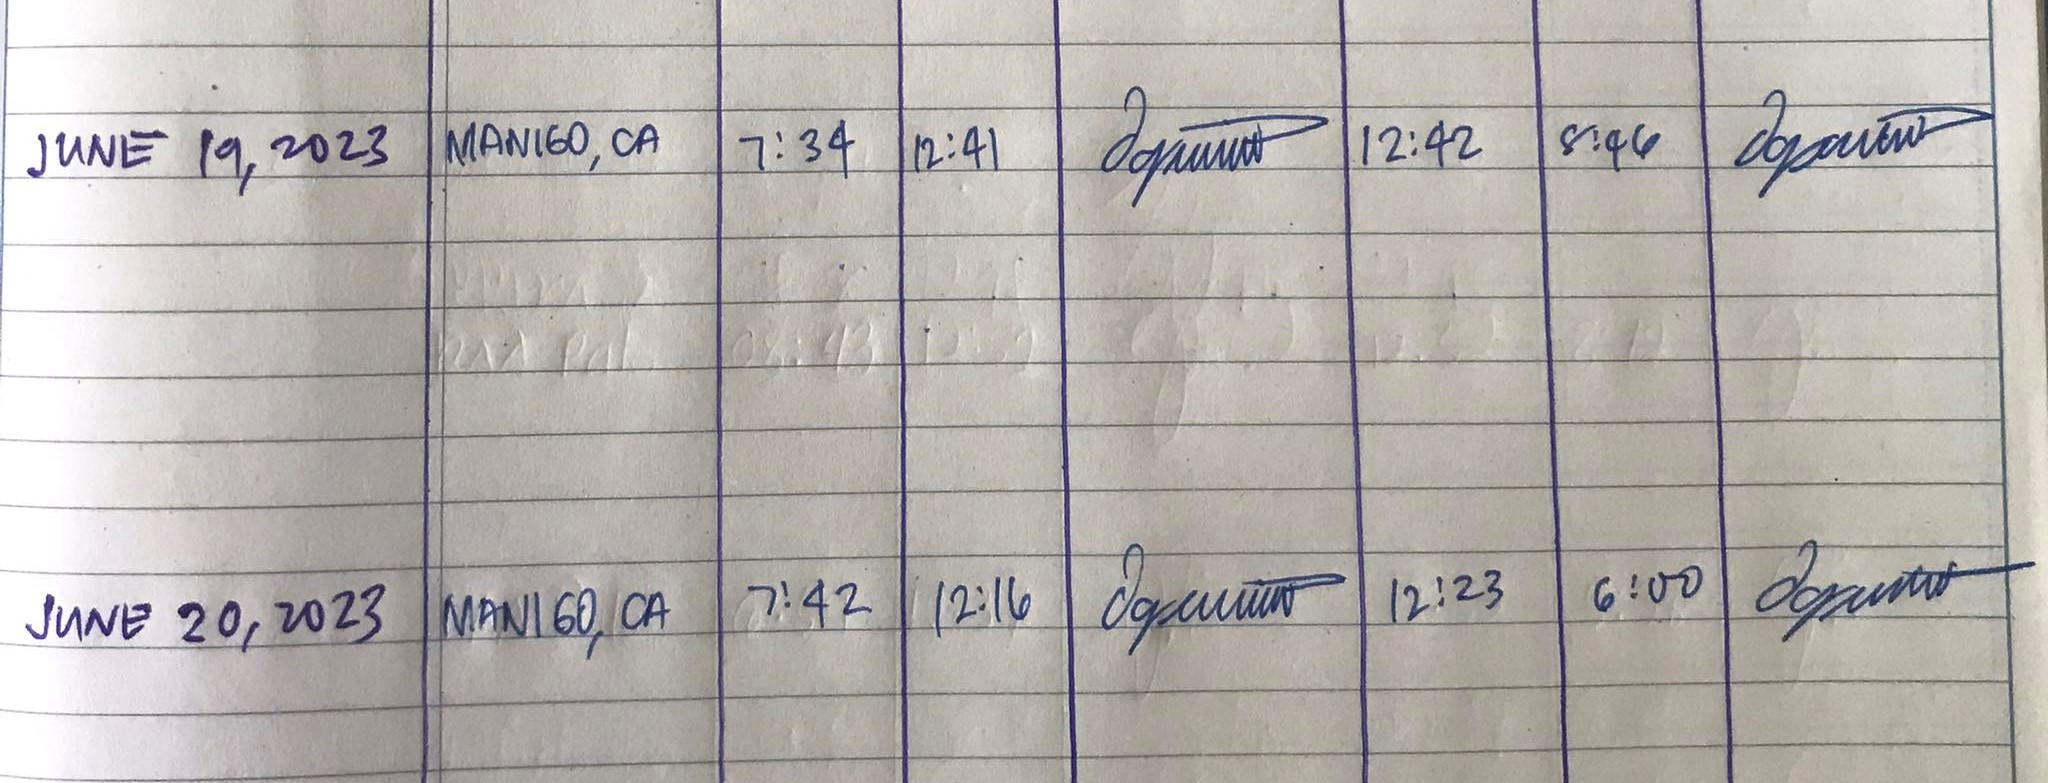 JUNE 19, 2023 MANIGO, CA 7:34 12:41 12:42 5:46
JUNE 20, 2023 MANIGO, CA 7:42 12:16 12:23 6:00